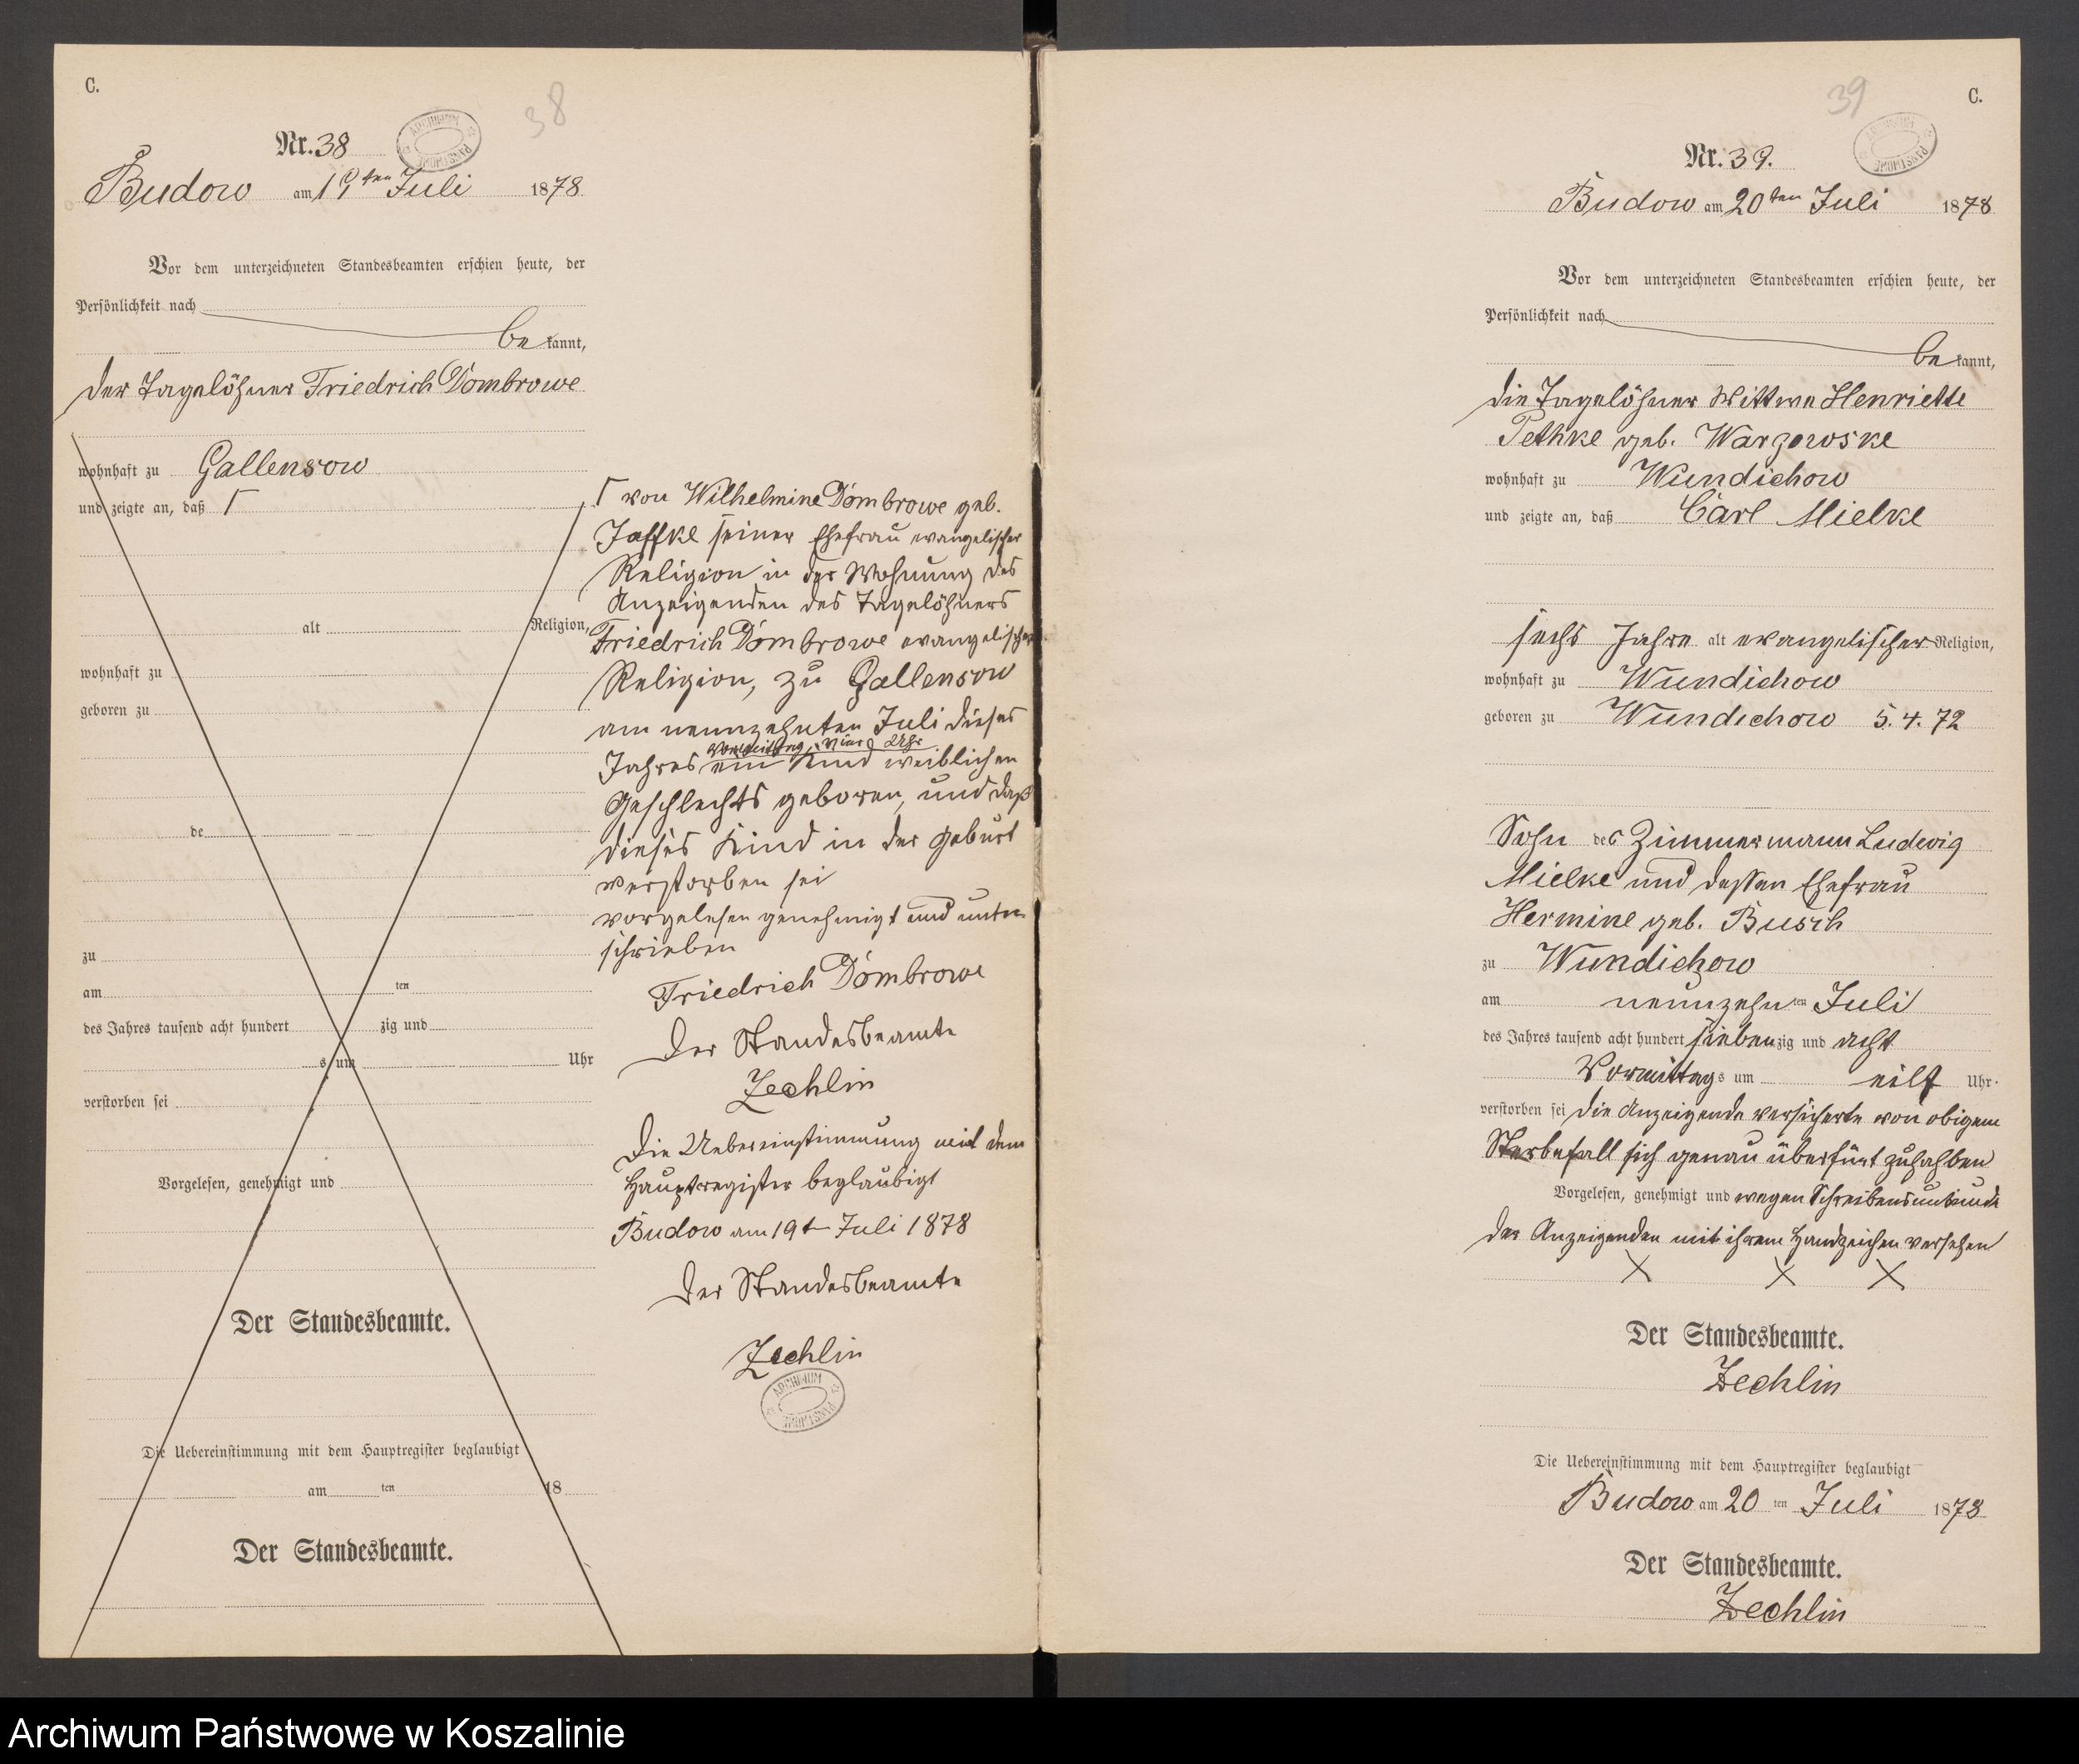 C.
38
Nr. 38
ARCHIWUM PAŃSTWOWE
Budow am 19ten Juli 1878
Vor dem unterzeichneten Standesbeamten erschien heute, der
Persönlichkeit nach
be kannt,
der Tagelöhner Friedrich Dombrowe
wohnhaft zu Gallensow
und zeigte an, daß Γ
alt Religion,
wohnhaft zu
geboren zu
de
zu
am ten
des Jahres tausend acht hundert zig und
s um Uhr
verstorben sei
Vorgelesen, genehmigt und
Der Standesbeamte.
Die Uebereinstimmung mit dem Hauptregister beglaubigt
am ten 18
Der Standesbeamte.
Γ von Wilhelmine Dombrowe geb.
Jaffke seiner Ehefrau evangelischer
Religion in der Wohnung des
Anzeigenden des Tagelöhners
Friedrich Dombrowe evangelischer
Religion, zu Gallensow
am neunzehnten Juli dieses
Vormittag vier Uhr
Jahres ein Kind weiblichen
Geschlechts geboren, und daß
dieses Kind in der Geburt
verstorben sei
vorgelesen genehmigt und unter
schrieben
Friedrich Dombrowe
Der Standesbeamte
Zechlin
Die Uebereinstimmung mit dem
Hauptregister beglaubigt
Budow am 19t Juli 1878
Der Standesbeamte
Zechlin
ARCHIWUM PAŃSTWOWE
39
C.
Nr. 39.
ARCHIWUM PAŃSTWOWE
Budow am 20ten Juli 1878
Vor dem unterzeichneten Standesbeamten erschien heute, der
Persönlichkeit nach
be kannt,
die Tagelöhner Wittwe Henriette
Pethke geb. Wargowske
wohnhaft zu Wundichow
und zeigte an, daß Carl Mielke
sechs Jahre alt evangelischer Religion,
wohnhaft zu Wundichow
geboren zu Wundichow 5. 4. 72
Sohn des Zimmermann Ludewig
Mielke und dessen Ehefrau
Hermine geb. Busch
zu Wundichow
am neunzehn ten Juli
des Jahres tausend acht hundert sieben zig und acht
Vormittag s um eilf Uhr
verstorben sei die Anzeigende versicherte von obigem
Sterbefall sich genau überfürt zuhahben
Vorgelesen, genehmigt und wegen Schreibensunkunde
der Anzeigenden mit ihrem Handzeichen versehen
X X X
Der Standesbeamte.
Zechlin
Die Uebereinstimmung mit dem Hauptregister beglaubigt
Budow am 20 ten Juli 1878
Der Standesbeamte.
Zechlin
Archiwum Państwowe w Koszalinie